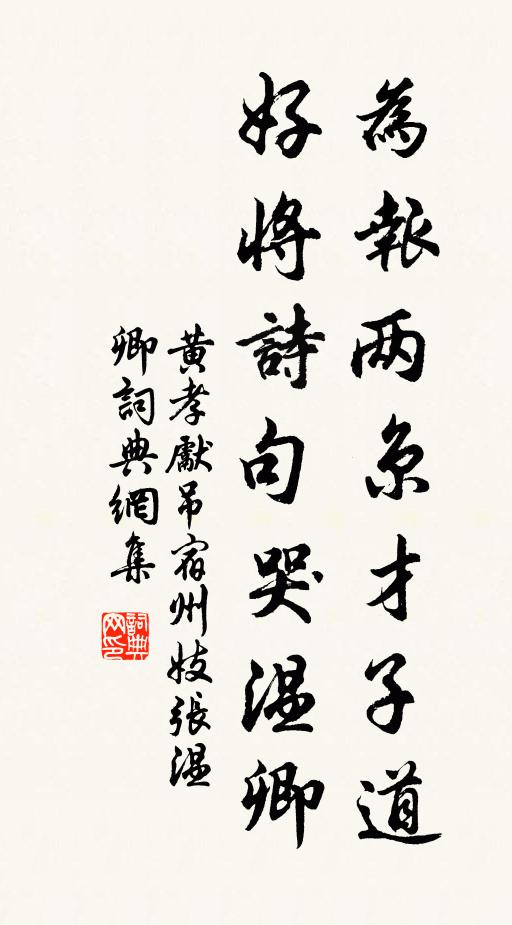 為報兩京才子道
好將詩句哭溫卿
黃孝獻吊宿州妓張溫
卿詞典網集
詞典
网印